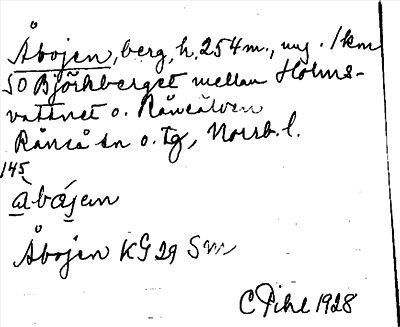 Åbojen, berg, h. 254 m., ung. 1 km
SO Björkberget mellan Holms-
vattnet o. Råneälven
Råneå sn o. tg, Norrb. l.
145
åbåjen
Åbojen KG 29 Sm
C Pihl 1928